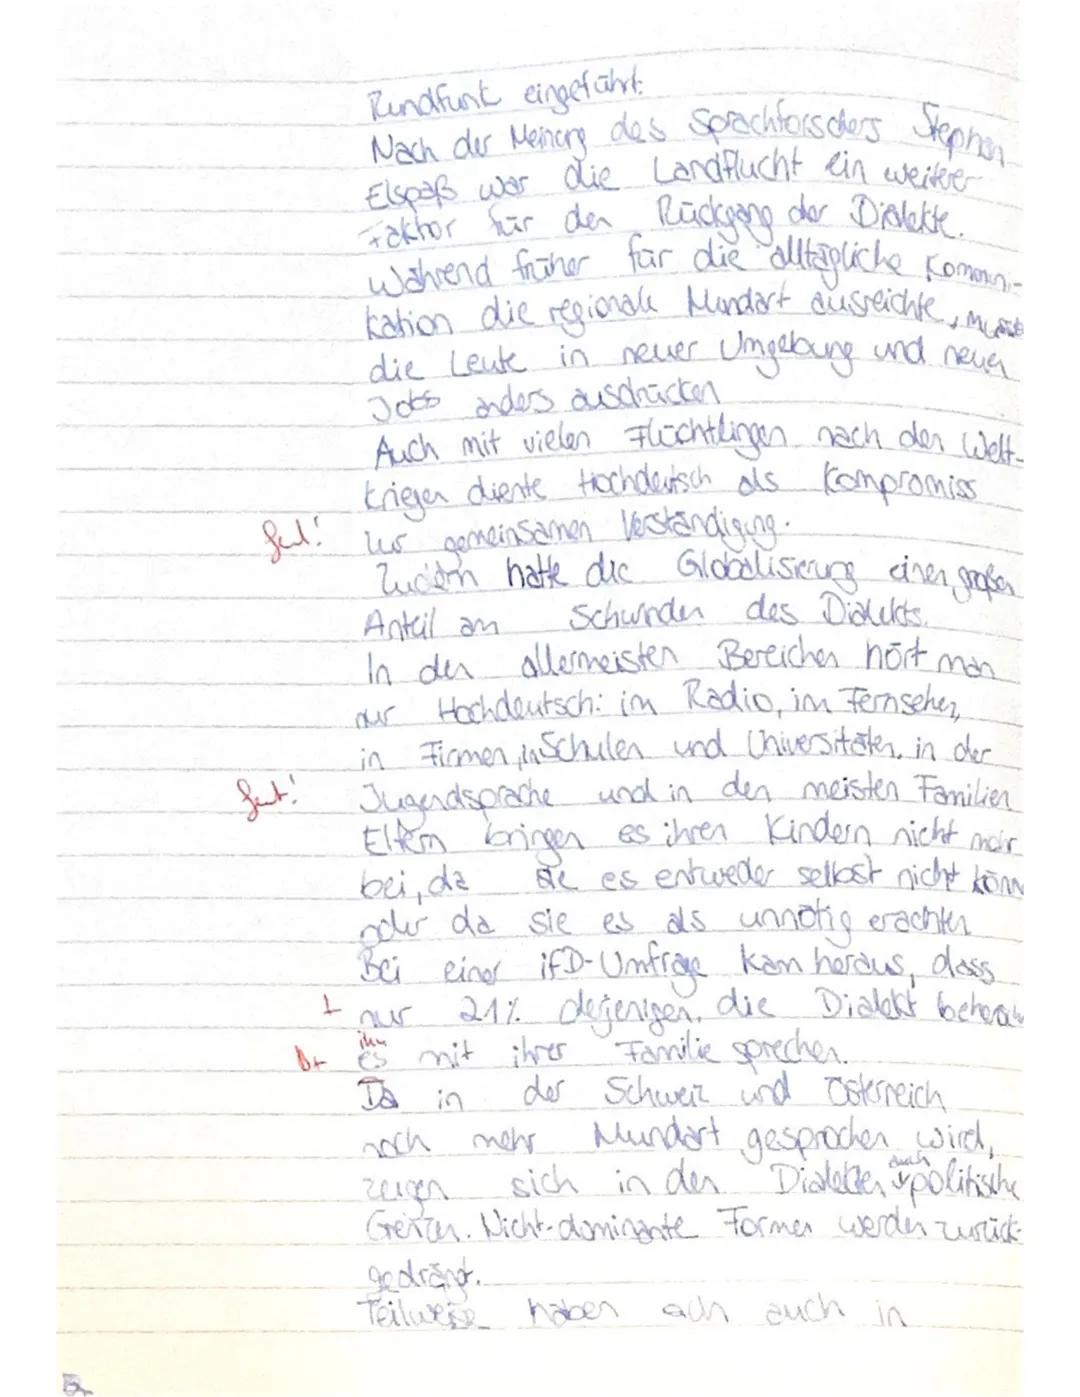 Rundfunk eingeführt.
Nach der Meinung des Sprachforschers Stephan
Elspaß war die Landflucht ein weiterer
Faktor für den Rückgang der Dialekte.
Während früher für die alltägliche Kommuni-
kation die regionale Mundart ausreichte,
die Leute in neuer Umgebung und neuen
Jobs anders ausdrücken
Auch mit vielen Flüchtlingen nach den Welt-
kriegen diente Hochdeutsch als Kompromiss
gut! zur gemeinsamen Verständigung.
Zudem hatte die Globalisierung einen großen
Anteil am Schwinden des Dialekts.
In den allermeisten Bereichen hört man
nur Hochdeutsch: im Radio, im Fernsehen,
in Firmen, in Schulen und Universitäten, in der
gut! Jugendsprache und in den meisten Familien
Eltern bringen es ihren Kindern nicht mehr
bei, da sie es entweder selbst nicht könn
oder da sie es als unnötig erachten
Bei einer ifD-Umfrage kam heraus, dass
nur 21% derjenigen, die Dialekt
ihn
es mit ihrer Familie sprechen.
Da in der Schweiz und Österreich
noch mehr Mundart gesprochen wird,
auch
zeigen sich in den Dialekten politische
Grenzen. Nicht-dominante Formen werden zurück-
gedrängt.
Teilweise haben sich auch in